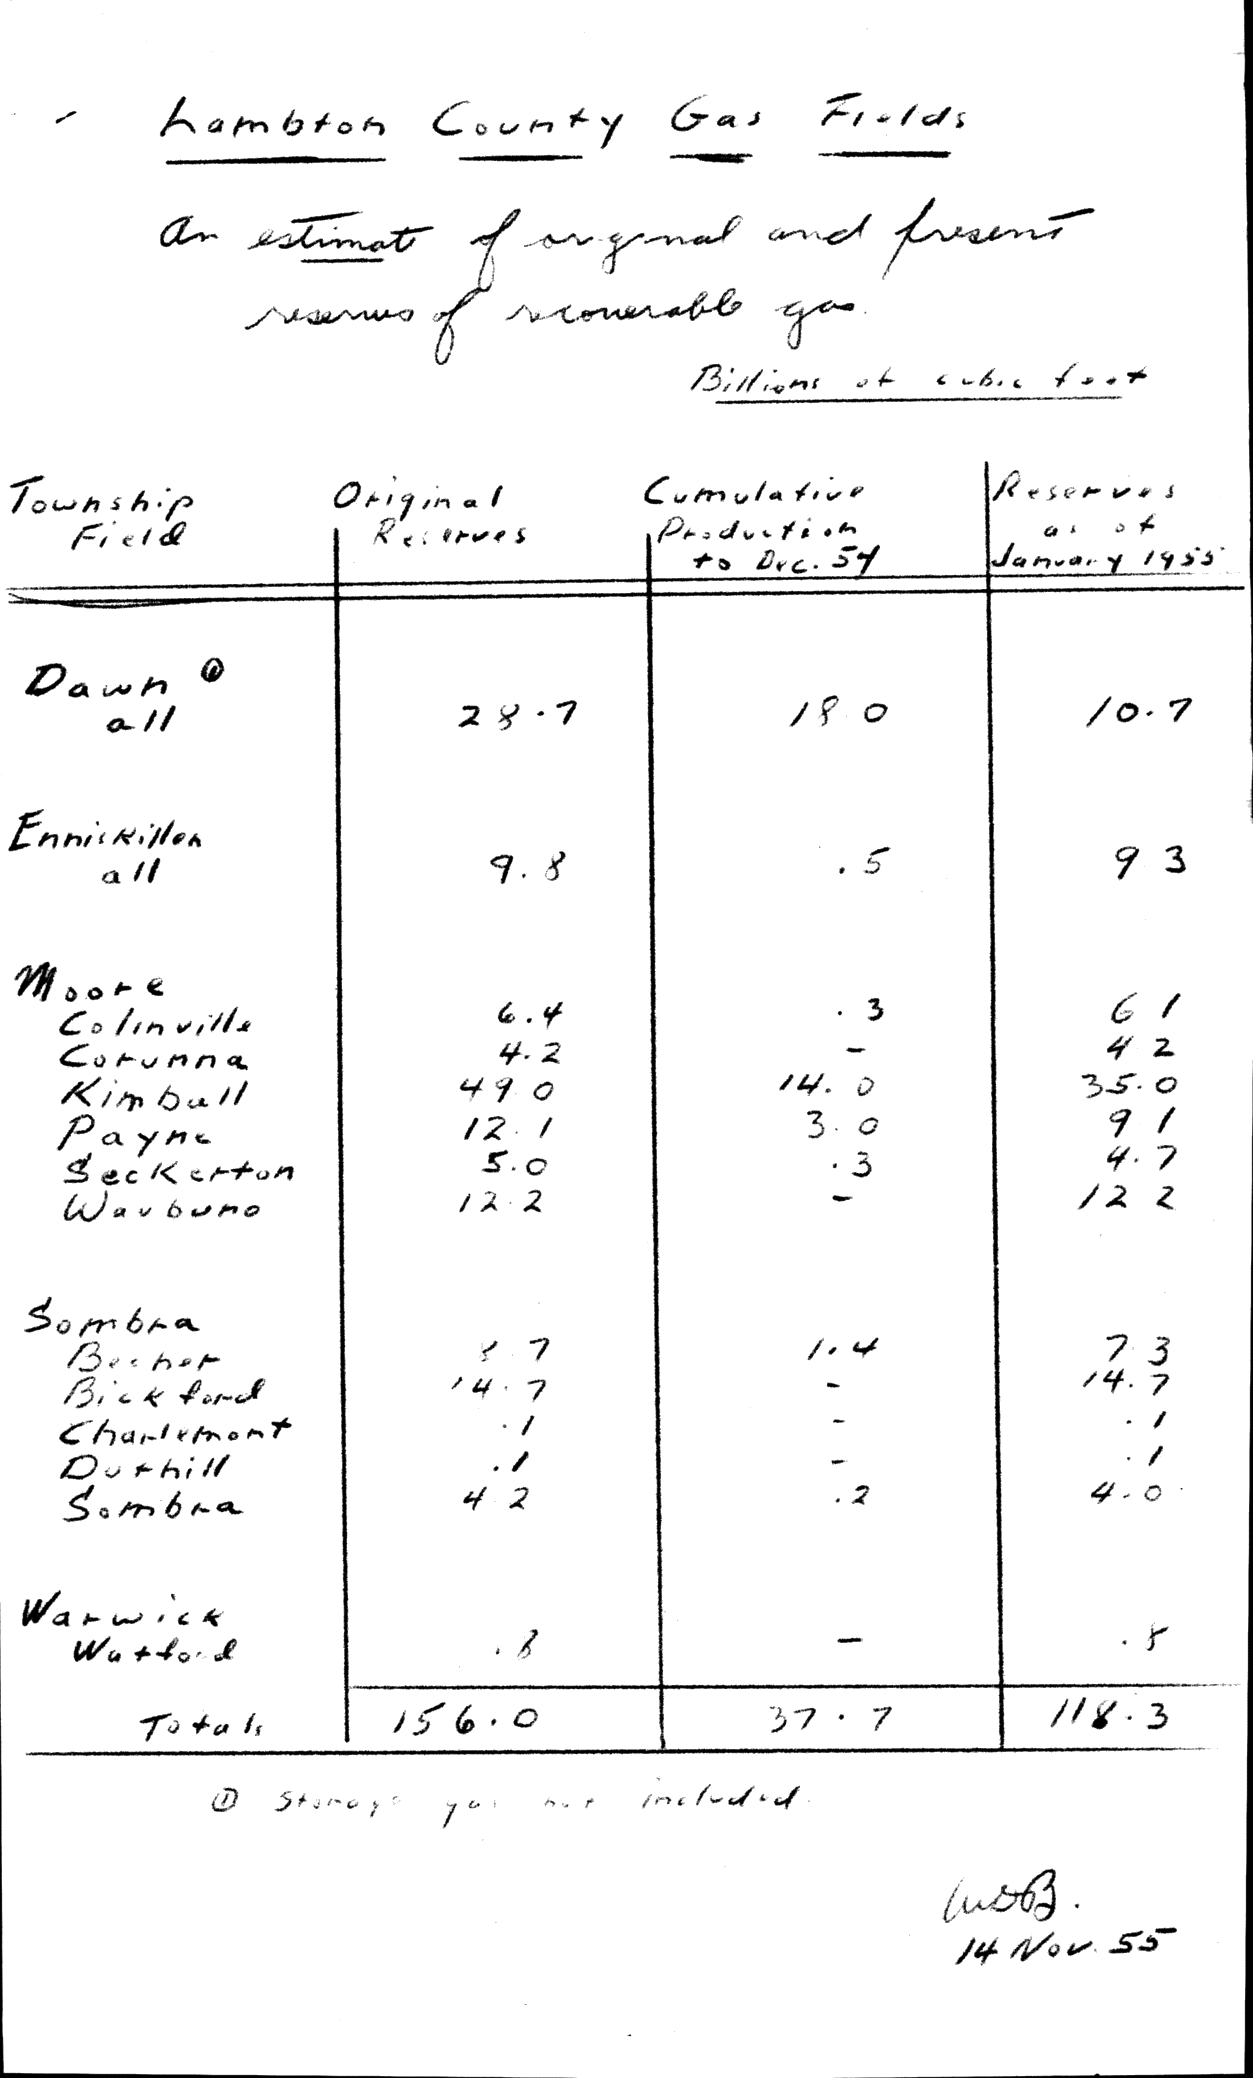 Lambton County Gas Fields
An estimate of original and present
reserves of recoverable gas.
Billions of cubic feet
Township Field | Original Reserves | Cumulative Production to Dec. 54 | Reserves as of January 1955
Dawn ①
all 28.7 18.0 10.7
Enniskillen
all 9.8 .5 9.3
Moore
Colinville 6.4 .3 6.1
Corunna 4.2 - 4.2
Kimball 49.0 14.0 35.0
Payne 12.1 3.0 9.1
Seckerton 5.0 .3 4.7
Waubuno 12.2 - 12.2
Sombra
Becher 8.7 1.4 7.3
Bickford 14.7 - 14.7
Charlemont .1 - .1
Duthill .1 - .1
Sombra 4.2 .2 4.0
Warwick
Watford .8 - .8
Totals 156.0 37.7 118.3
① Storage gas not included.
14 Nov. 55